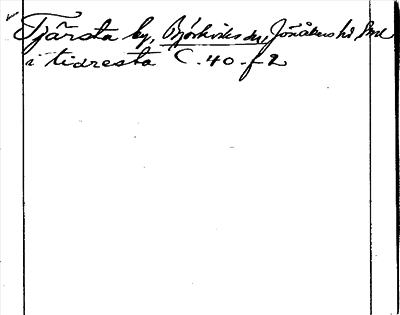 Tjärsta by, Björkviks sn, Jönåkers hd Smd
i tidresta C. 40. f 2